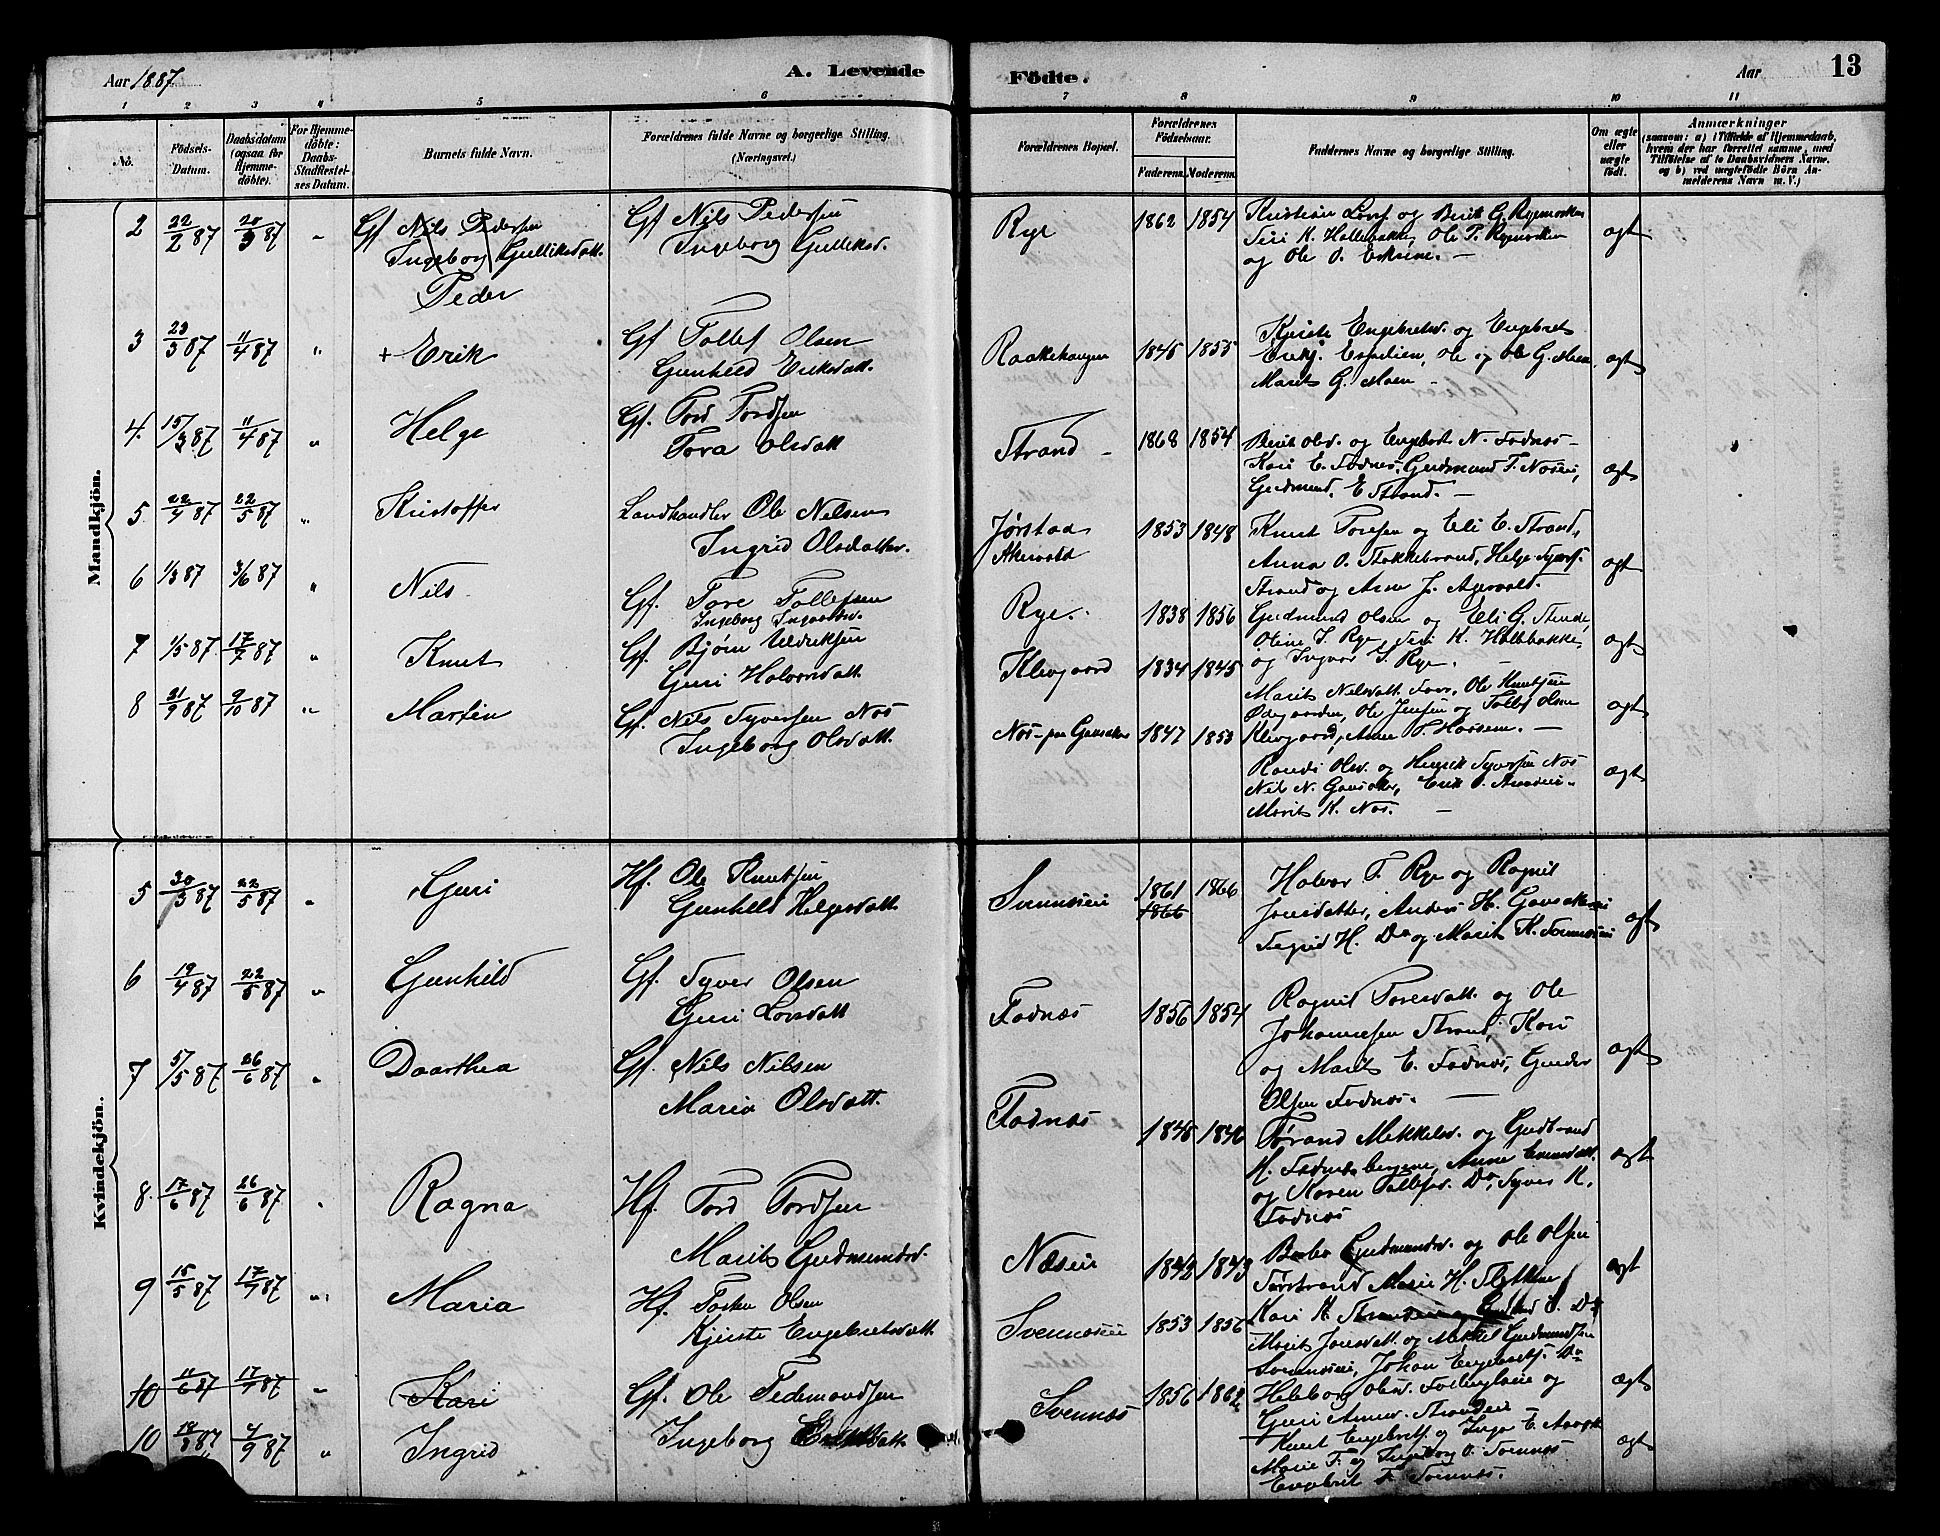 Aar 1887
A. Levende
Födte.
Aar
13
1 2 3 4 5 6 7 8 9 10 11
No.
Födsels-Datum.
Daabsdatum (ogsaa for Hjemme-döbte).
For Hjemme-döbte: Daabs-Stadfæstel-ses Datum.
Barnets fulde Navn.
Forældrenes fulde Navne og borgerlige Stilling. (Næringsvei.)
Forældrenes Bopæl.
Forældrenes Födselsaar.
Faderens. Moderens.
Faddernes Navne og borgerlige Stilling.
Om ægte eller uægte födt.
Anmærkninger
(saasom: a) i Tilfælde af Hjemmedaab, hvem der har forrettet samme, med Tilföielse af to Daabsvidners Navne, og b) ved uægtefödte Börn An-melderens Navn m. V.)
Mandkjön.
2 22/2 87 20/3 87 " Gf Nils Pedersen
Ingeborg Gulliksdatt.
Peder
Gf Nils Pedersen
Ingeborg Gulliksd.
Rye 1862 1854
Kristian Lars. og Berit G. Ryemoken
Siri K. Hallebakke, Ole T. Ryemoken
og Ole O.
ægt
3 23/3 87 11/4 87 " + Erik
Gf Tollef Olsen
Gunhild Eriksdatt.
Raakehaugen 1845 1855
Kjersti Engebretsd. og Engebret
Ole og Ole G. Moen
Marit G. Moen -
ægt
4. 15/3 87 11/4 87 " Helge
Gf. Tord Tordsen
Tora Olsdatt
Strand - 1868 1854
Berit Olsd. og Engebret N. Fodnes -
Kari E. Fodnes, Gudmund T. Nøseie,
Gudmund E Strand. -
ægt
5 22/4 87 22/5 87 " Kristoffer
Landhandler Ole Nelsen
Ingrid Olsdatter.
Jørstad
Akervold
1853 1848
Knut Toresen og Eli E. Strand,
Anna O. Stakkebrand, Helge Syvers.
Strand og Arne J. Agervold.
ægt
6 1/3 87 3/6 87 " Nils
Gf. Tore Tollefsen
Ingeborg Ingvarsd.
Rye. 1838 1856
Gudmund Olsen og Eli G. Strande,
Oline T. Rye, Siri K. Hallebakke,
og Ingvar T. Rye. -
ægt
7 1/5 87 17/7 87 " Knut
Gf. Bjørn Uldriksen
Guri Halvorsdatt
Klevgaard 1834 1845
Marit Nilsdatt Foss, Ole Knutsen
Ødegaarden, Ole Jensen og Tollef Olsen
Klevgaard, Anne T. -
ægt
8 21/9 87 9/10 87 " Martin
Gf. Nils Syversen Nøs
Ingeborg Olsdatt.
Nøs - paa Gavsaker 1847 1853
Randi Olsd. og Henrik Syversen Nøs
Nils N. Gavsaker, Erik O.
Marit K. Nøs. -
ægt
Kvindekjön.
5 30/3 87 22/5 87 " Guri
Hf. Ole Knutsen
Gunhild Helgesdatt
Svennæseie 1861 1866
1866
Halvor T. Rye og Ragnil
Jonsdatter, Anders H. Gavsakereie
Sigrid H. Do og Marit K. Svennæseie
ægt
6 19/4 87 22/5 87 " Gunhild
Gf. Syver Olsen
Guri Larsdatt
Fodnæs 1856 1854
Ragnil Toresdatt. og Ole
Johannesen Strand, Kari
og Marit E. Fodnæs, Gudmr
Olsen Fodnæs. -
ægt
7 5/5 87 26/6 87 " Daarthea
Gf. Nils Nilsen
Maria Olsdatt.
Fodnæs 1845 1846
Tørand Mekkelsd. og Gudbrand
H. Fodnæsbergene, Anne
og Karen Tollefsd. Do, Syver K.
Fodnæs
ægt
8. 17/6 87 26/6 87 " Ragna
Hf. Tord Tordsen
Marit Gudmundsd.
Næseie 1842 1843
Gudmundsd. og Ole Olsen
Marie H.
Kari K.
ægt
9 15/5 87 17/7 87 " Maria
Hf. Torsten Olsen
Kjersti Engebretsdatt.
Svennæseie 1853 1856
Marit Jonsdatt. og Mekkel Gudmundsen
Svennæseie, Johan Engebrets. Do
ægt
10 11/6 87 17/7 87 " Kari
Gf. Ole Tedemandsen
Ingeborg
Svennæs 1856 1862
Heleborg Olsd. og
Guri Arnesd. Strandeie -
10 14/8 87 4/9 87 " Ingrid
Knut Engebrets. og Inga E.
Marie T. og Ingeborg O. Svennæs
Engebret T. Svennæs.
ægt